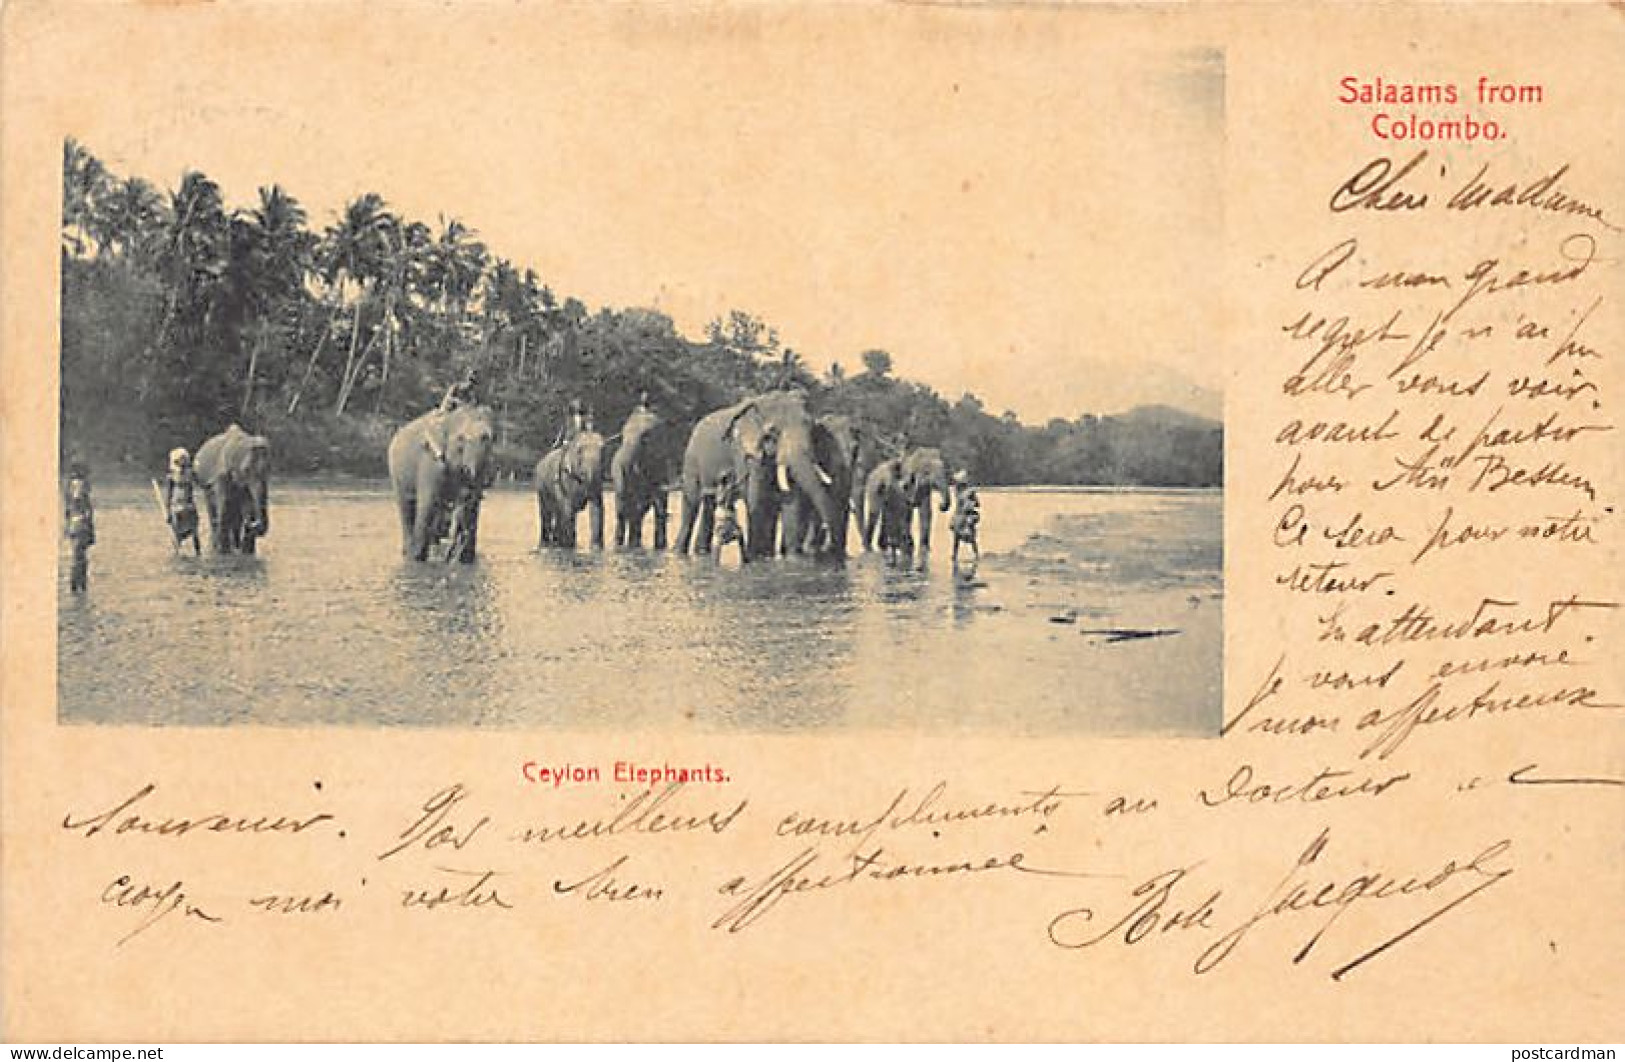 Salaams from
Colombo.
Chèri Madame
A mon grand
regret je n'ai pu
aller vous voir.
avant de partir
pour
Ce sera pour notre
retour.
En attendant.
je vous envoie
mon affectueux
Ceylon Elephants.
Souvenir. Nos meilleurs compliments au Docteur et
croyez moi votre bien affectionnée
Jacquot
www.delcampe.net
postcardman